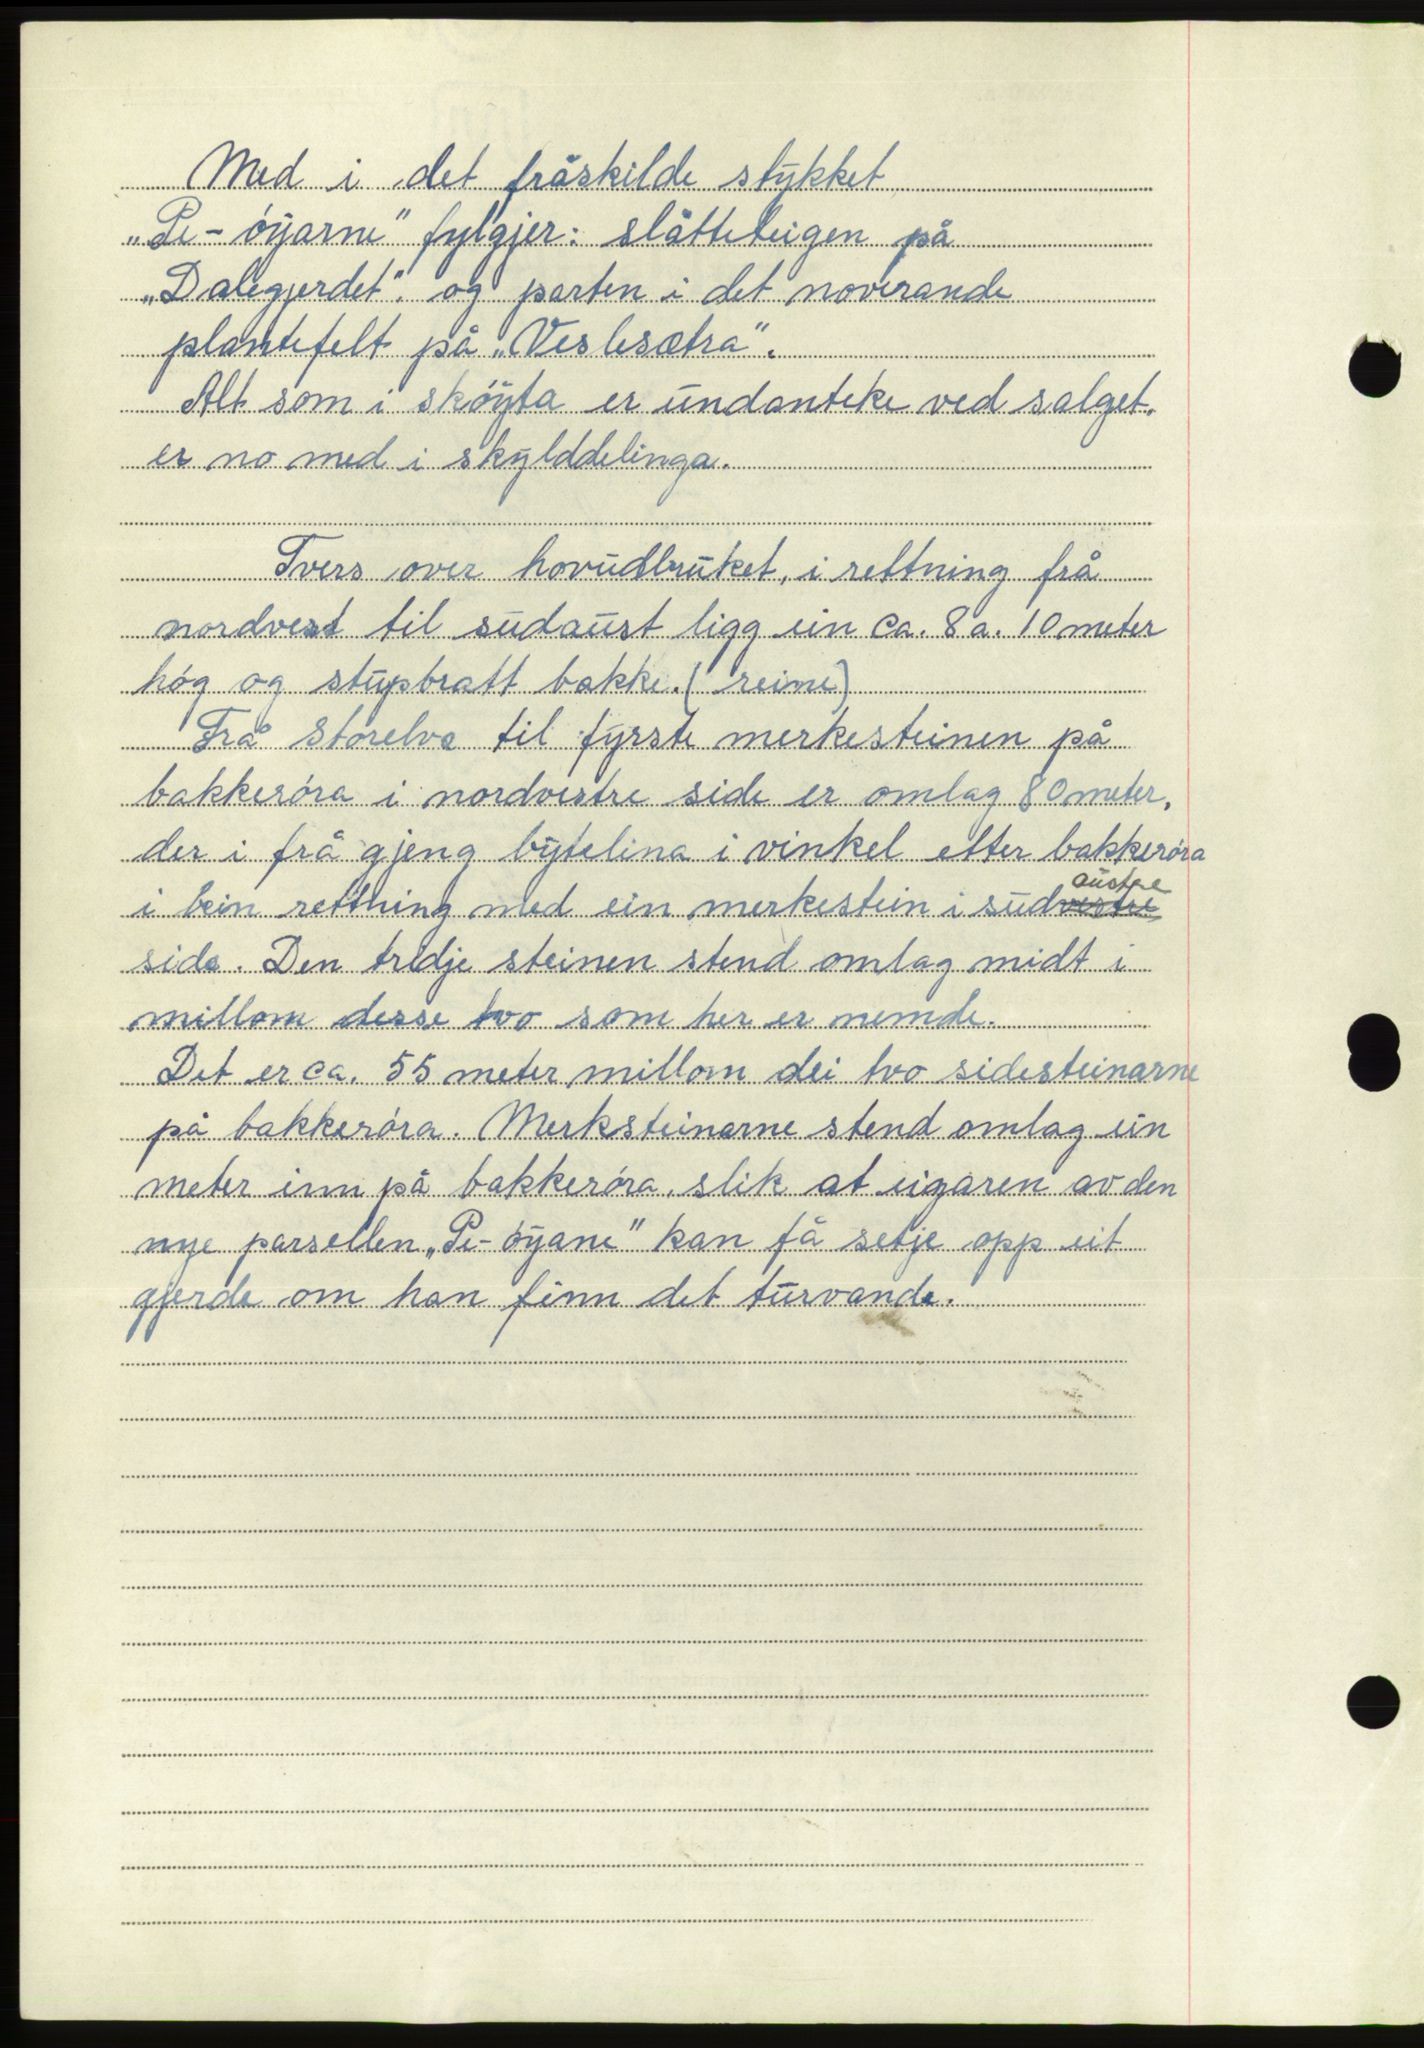 Med i det fråskilde stykket
„Pe-öyarne" fylgjer: slåtteteigen på
„Dalegjerdet". og parten i det noverande
plantefelt på „Veslesætra".
Alt som i sköyta er undanteke ved salget.
er no med i skylddelinga.
Tvers over hovudbruket, i rettning frå
nordvest til sudaust ligg ein ca. 8 a. 10 meter
hóg og stupbratt bakke. (reine)
Frå Storelva til fyrste merkesteinen på
bakkeróra i nordvestre side er omlag 80 meter.
der i frå gjeng bytelina i vinkel etter bakkeróra
i bein rettning med ein merkestein i sudvestre austre
side. Den tridje steinen stend omlag midt i
millom desse tvo som her er nemde.
Det er ca. 55 meter millom dei tvo sidesteinarne
på bakkeróra. Merksteinarne stend omlag ein
meter inn på bakkeróra, slik at eigaren av den
nye parsellen „Pe-öyane" kan få setje opp eit
gjerde om han finn det turvande.